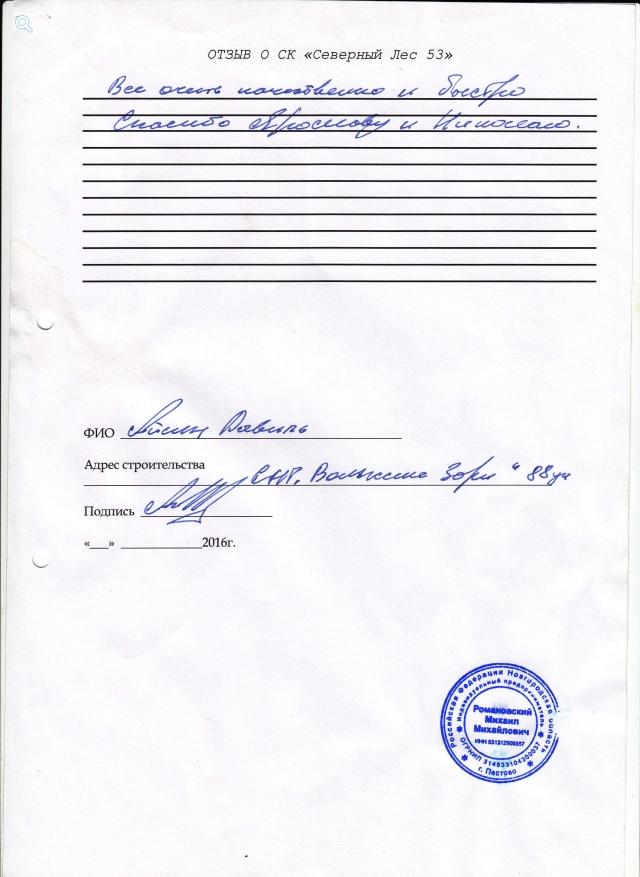 ОТЗЫВ О СК «Северный Лес 53»
Все очень качественно и быстро
Спасибо Ярославу и Николаю.
ФИО
Адрес строительства
СНТ, Волжские Зори " 88 уч
Подпись
«___» ____________2016г.
Российская Федерация Новгородская область
Индивидуальный предприниматель
Романовский
Михаил
Михайлович
ИНН 531312909357
ОГРНИП 314533104300037
г. Пестово